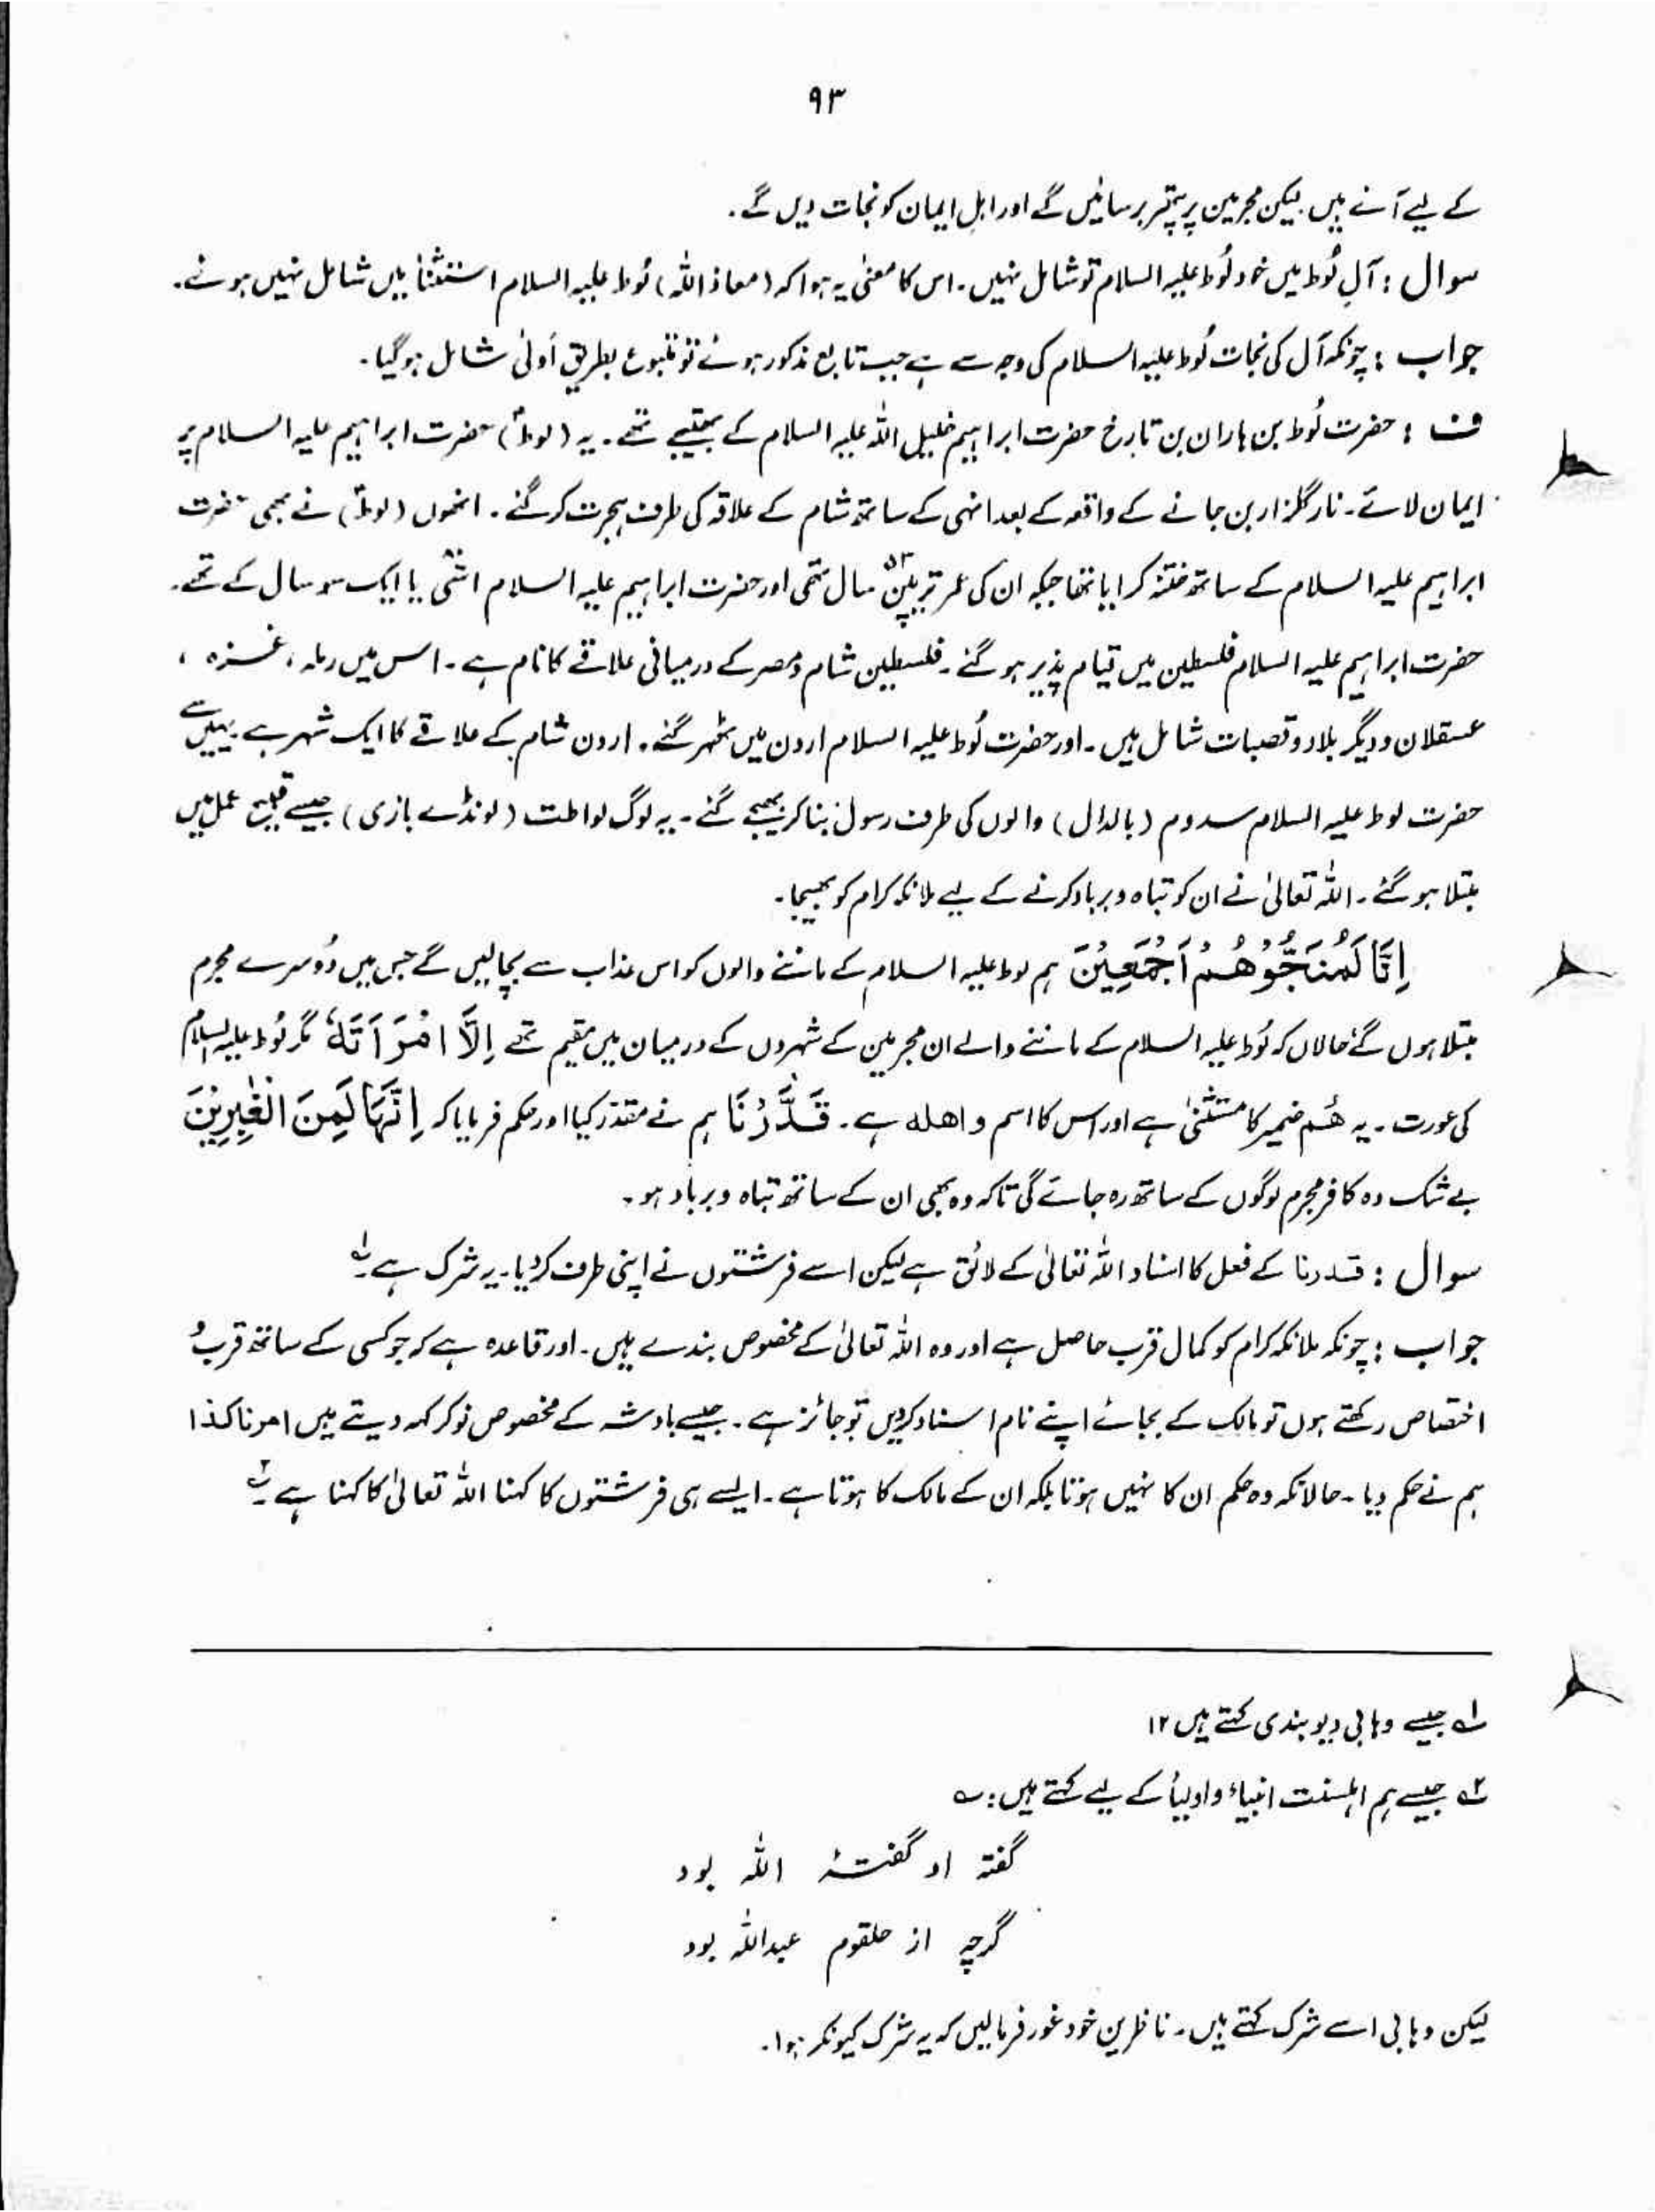 ۹۳
کے لیے آئے ہیں لیکن مجرمین پر پتھر برسائیں گے اور اہلِ ایمان کو نجات دیں گے۔
سوال : آلِ لُوط میں خود لُوط علیہ السلام تو شامل نہیں۔ اس کا معنیٰ یہ ہوا کہ (معاذ اللہ) لُوط علیہ السلام استثناء میں شامل نہیں ہوئے۔
جواب : چونکہ آل کی نجات لُوط علیہ السلام کی وجہ سے ہے جب تابع مذکور ہوئے تو متبوع بطریقِ اَولیٰ شامل ہو گیا۔
ف : حضرت لُوط بن ہاران بن تارخ حضرت ابراہیم خلیل اللہ علیہ السلام کے بھتیجے تھے۔ یہ (لوطؑ) حضرت ابراہیم علیہ السلام پر
ایمان لائے۔ نار گلزار بن جانے کے واقعہ کے بعد انہی کے ساتھ شام کے علاقہ کی طرف ہجرت کر گئے۔ انھوں (لوطؑ) نے بھی حضرت
ابراہیم علیہ السلام کے ساتھ ختنہ کرایا تھا جبکہ ان کی عمر ترپین۵۳ سال تھی اور حضرت ابراہیم علیہ السلام اسّی۸۰ یا ایک سو سال کے تھے۔
حضرت ابراہیم علیہ السلام فلسطین میں قیام پذیر ہو گئے۔ فلسطین شام و مصر کے درمیانی علاقے کا نام ہے۔ اس میں رملہ، غزہ،
عسقلان و دیگر بلاد و قصبات شامل ہیں۔ اور حضرت لُوط علیہ السلام اردن میں ٹھہر گئے۔ اردن شام کے علاقے کا ایک شہر ہے یہیں سے
حضرت لوط علیہ السلام سدوم (بالدال) والوں کی طرف رسول بنا کر بھیجے گئے۔ یہ لوگ لواطت (لونڈے بازی) جیسے قبیح عمل میں
مبتلا ہو گئے۔ اللہ تعالیٰ نے ان کو تباہ و برباد کرنے کے لیے ملائکہ کرام کو بھیجا۔
اِنَّا لَمُنَجُّوْهُمْ اَجْمَعِيْنَ ہم لوط علیہ السلام کے ماننے والوں کو اس عذاب سے بچا لیں گے جس میں دُوسرے مجرم
مبتلا ہوں گے حالاں کہ لُوط علیہ السلام کے ماننے والے ان مجرمین کے شہروں کے درمیان میں مقیم تھے اِلَّا امْرَاَتَهٗ مگر لُوط علیہ السلام
کی عورت۔ یہ ھُم ضمیر کا مستثنیٰ ہے اور اس کا اسم واھلہ ہے۔ قَدَّرْنَا ہم نے مقدر کیا اور حکم فرمایا کہ اِنَّهَا لَمِنَ الْغٰبِرِيْنَ
بے شک وہ کافر مجرم لوگوں کے ساتھ رہ جائے گی تاکہ وہ بھی ان کے ساتھ تباہ و برباد ہو۔
سوال : قدرنا کے فعل کا اسناد اللہ تعالیٰ کے لائق ہے لیکن اسے فرشتوں نے اپنی طرف کر دیا۔ یہ شرک ہے۔۱؎
جواب : چونکہ ملائکہ کرام کو کمال قرب حاصل ہے اور وہ اللہ تعالیٰ کے مخصوص بندے ہیں۔ اور قاعدہ ہے کہ جو کسی کے ساتھ قرب و
اختصاص رکھتے ہوں تو مالک کے بجائے اپنے نام اسناد کر دیں تو جائز ہے۔ جیسے بادشہ کے مخصوص نوکر کہہ دیتے ہیں امرنا کذا
ہم نے حکم دیا۔ حالانکہ وہ حکم ان کا نہیں ہوتا بلکہ ان کے مالک کا ہوتا ہے۔ ایسے ہی فرشتوں کا کہنا اللہ تعالیٰ کا کہنا ہے۔۲؎
۱؎ جیسے وہابی دیوبندی کہتے ہیں ۱۲
۲؎ جیسے ہم اہلسنت انبیاء و اولیاء کے لیے کہتے ہیں : ؎
گفتہ او گفتۂ اللہ بود
گرچہ از حلقوم عبداللہ بود
لیکن وہابی اسے شرک کہتے ہیں۔ ناظرین خود غور فرمالیں کہ یہ شرک کیونکر ہوا۔